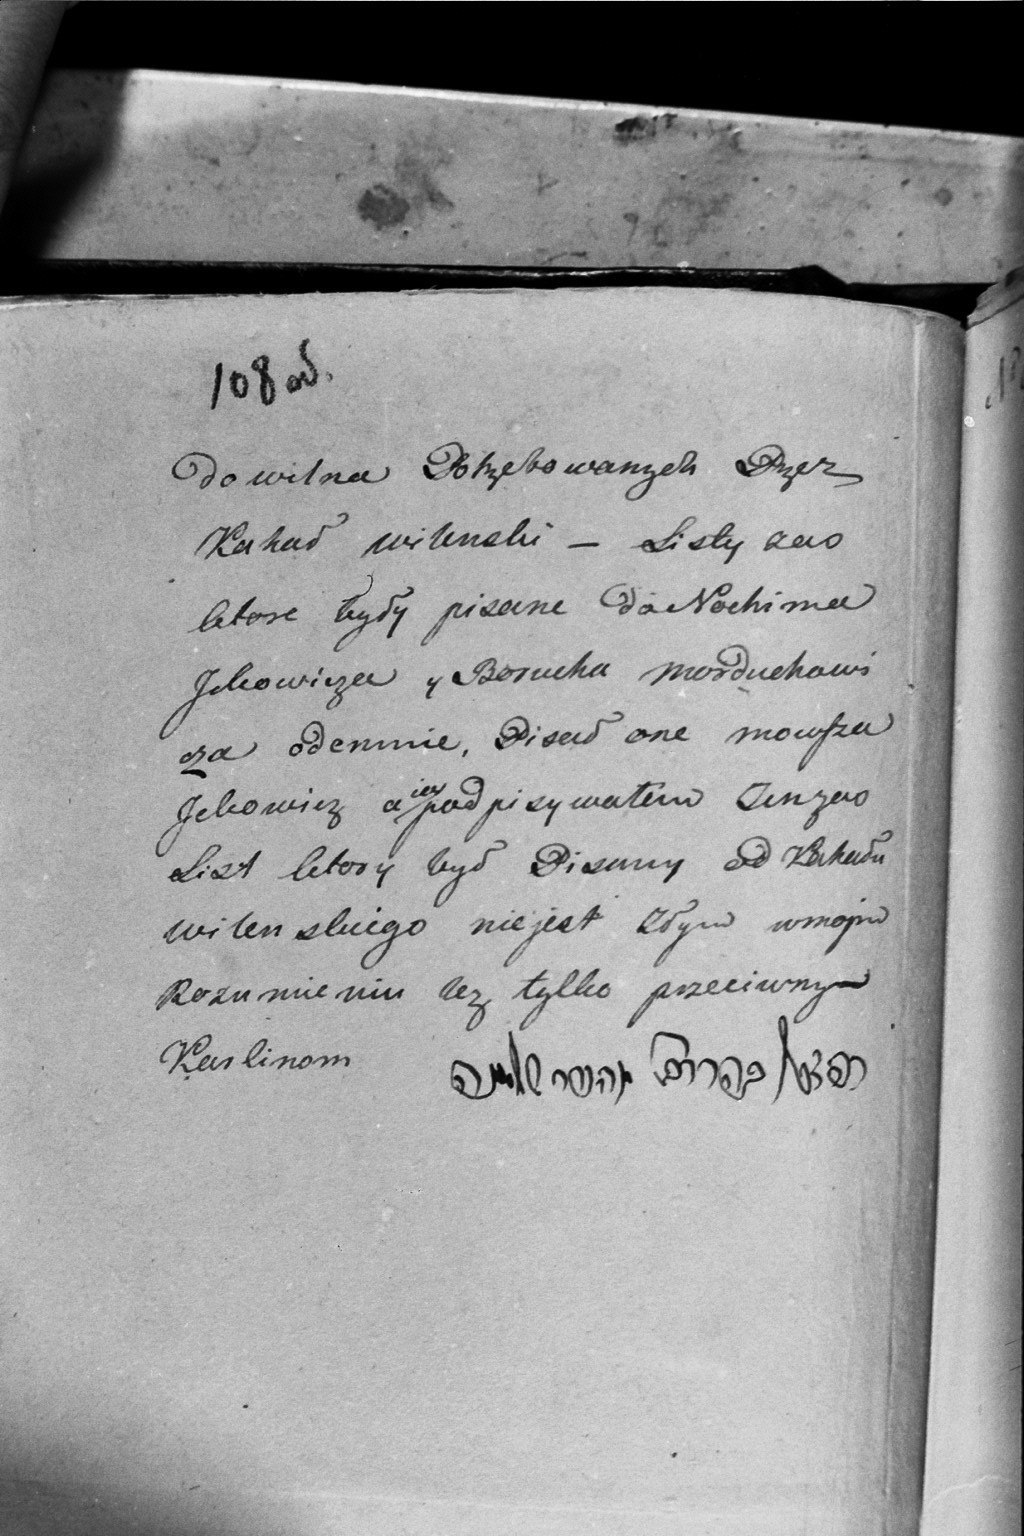 108 od.
Do wilna Potrzebowanych Przez
Kahał wilenski — Listy zas
ktore były pisane do Nochima
Jckowicza y Borucha Morduchowi
cza odemnie, Pisał one mowsza
Jckowicz a ia podpisywałem
List ktory był Pisany od Kahału
wilenskiego nie jest złym w mojm
Rozumieniu lez tylko przeciwnym
Karlinom